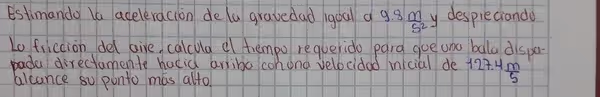 Estimando la aceleración de la gravedad igual a 9.8 m/s² y despreciando
la fricción del aire, calcula el tiempo requerido para que una bala dispa-
pada directamente hacia arriba con una velocidad inicial de 127.4 m/s
alcance su punto más alto.